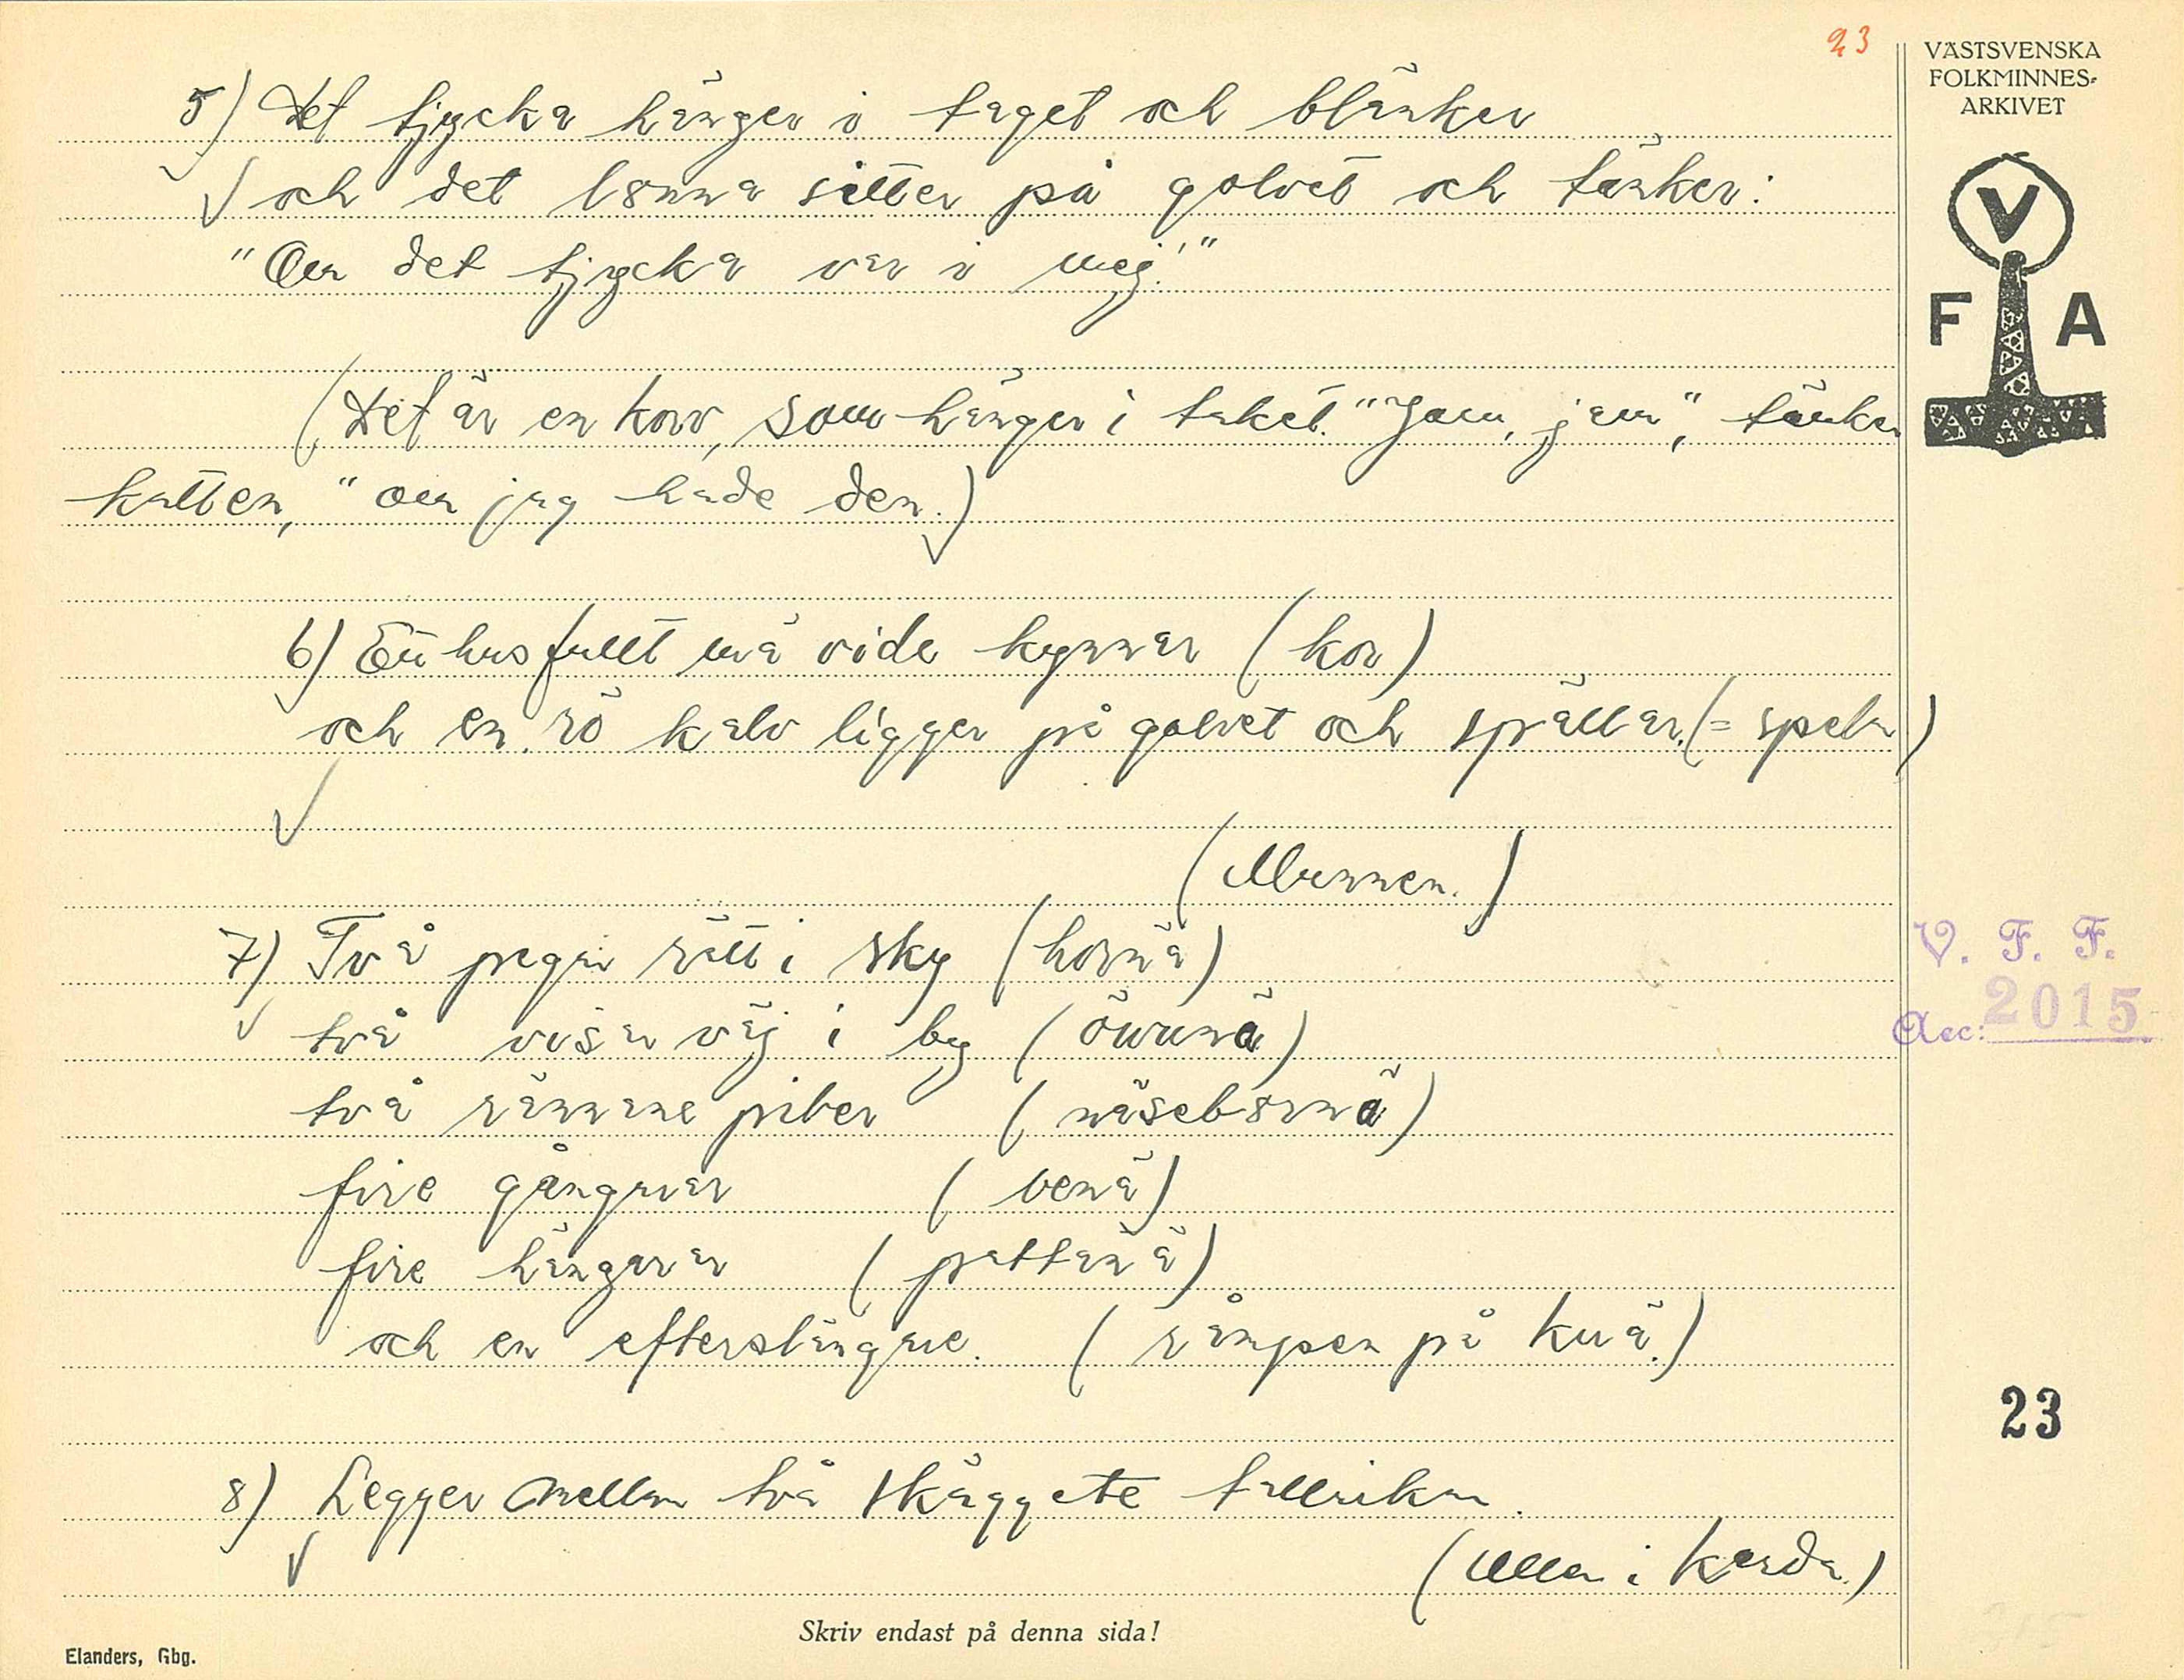 23
VÄSTSVENSKA
FOLKMINNES-
ARKIVET
V
F A
5) Det tjycka hänger i taget och blänker
och det lönna sitter på golvet och tänker:
"Om det tjycka var i mej!"
(Det är en korv, som hänger i taket. "Jam, jam", tänker
katten, "om jag hade den.)
6) Ett hus fullt må vide kynnar (kor)
och en rö kalv ligger på golvet och spällar. (= spelar)
(Munnen.)
7) Två pegar rätt i sky (hornä)
två visar väj i by (öuunä)
två rännane piber (näsebörnä)
fire gångarar (benä)
fire hängarar (pattanä)
och en efterslängare. (rämpen på kuä.)
8) Legger mellan två skäggete tallrikar.
(Ullen i karda.)
V. F. F.
Acc: 2015
23
Skriv endast på denna sida!
Elanders, Gbg.